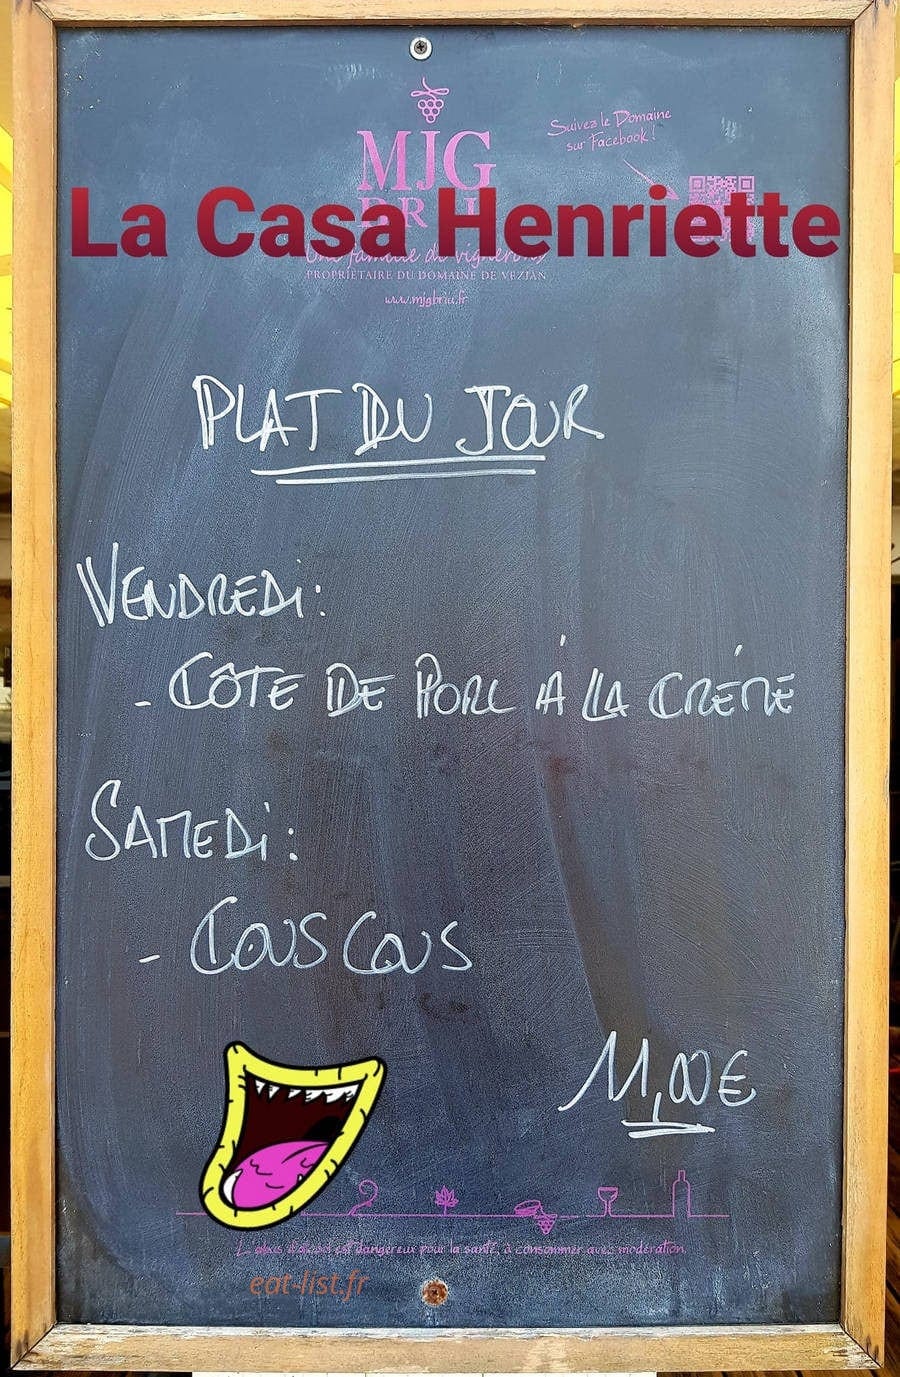 MJG
Suivez le Domaine
sur Facebook !
La Casa Henriette
Une famille de vignerons
PROPRIÉTAIRE DU DOMAINE DE VEZIAN
www.mjgbriu.fr
PLAT DU JOUR
VENDREDI :
- CÔTE DE PORC À LA CRÉME
SAMEDI :
- COUSCOUS
11,00€
L'abus d'alcool est dangereux pour la santé, à consommer avec modération.
eat-list.fr